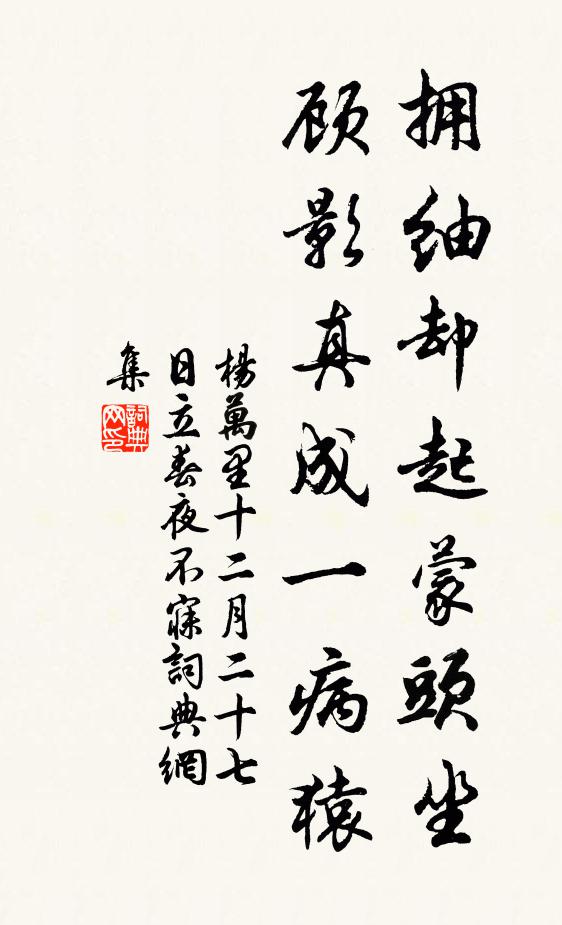 拥紬却起蒙頭坐
顾影真成一病猿
楊萬里十二月二十七
日立春夜不寐詞典網
集
詞典网印